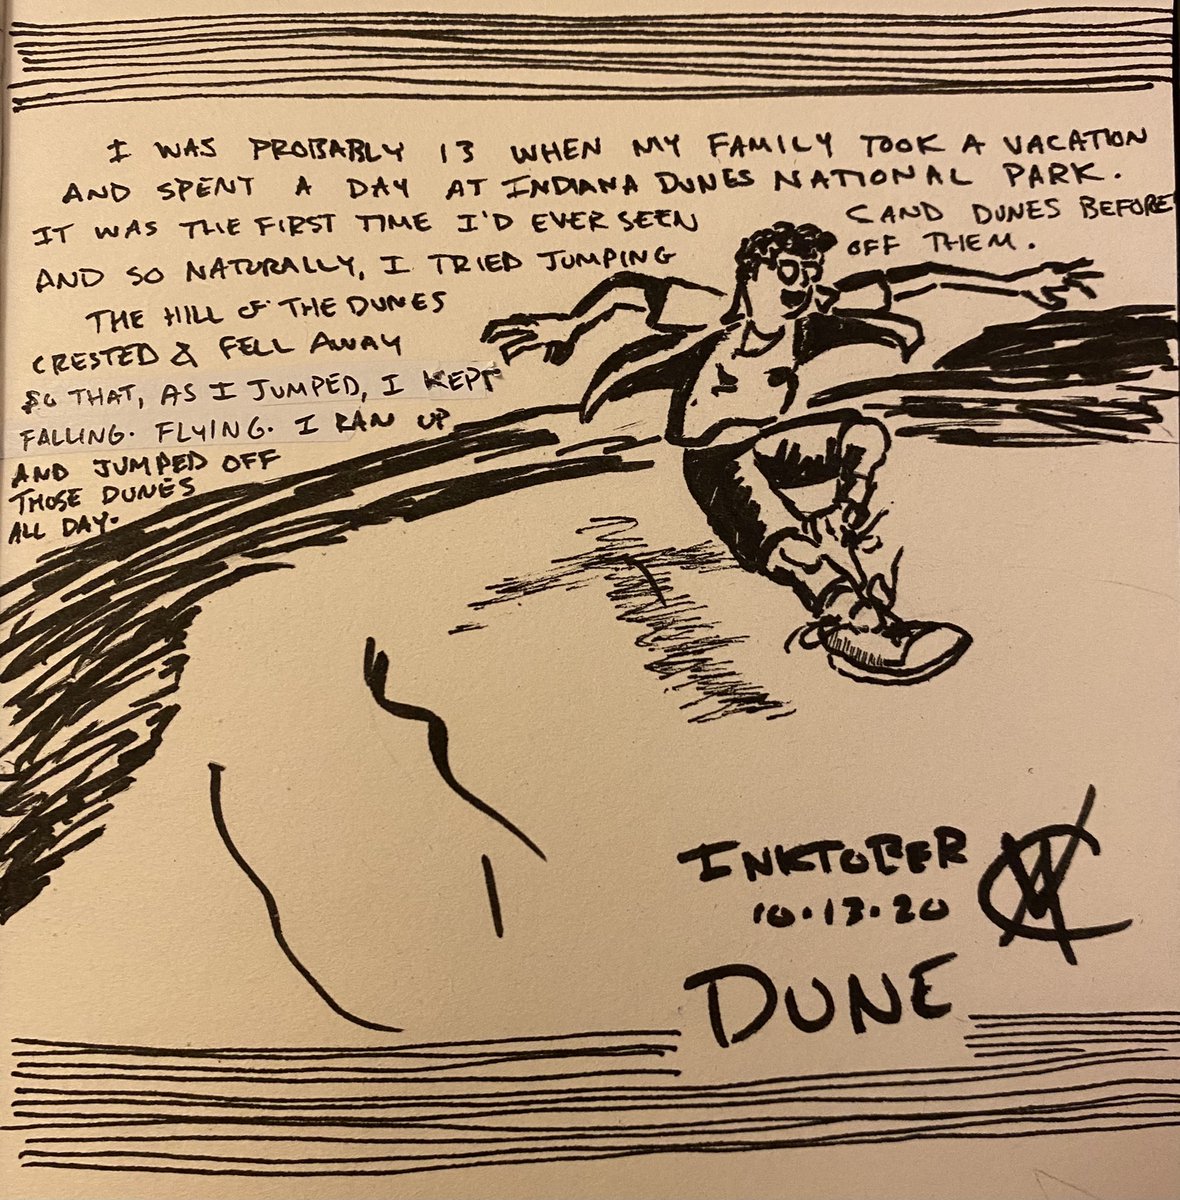 I WAS PROBABLY 13 WHEN MY FAMILY TOOK A VACATION
AND SPENT A DAY AT INDIANA DUNES NATIONAL PARK.
IT WAS THE FIRST TIME I'D EVER SEEN SAND DUNES BEFORE
AND SO NATURALLY, I TRIED JUMPING OFF THEM.
THE HILL OF THE DUNES
CRESTED & FELL AWAY
SO THAT, AS I JUMPED, I KEPT
FALLING. FLYING. I RAN UP
AND JUMPED OFF
THOSE DUNES
ALL DAY.
INKTOBER
10.13.20
DUNE